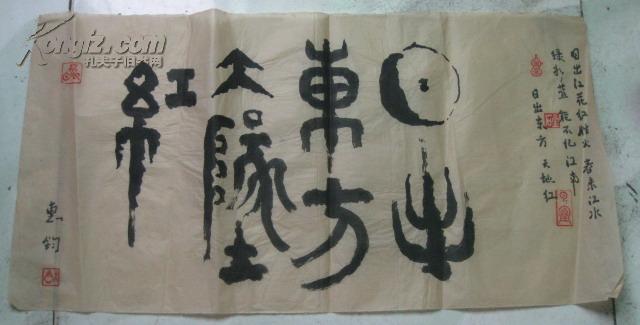 日出江花红胜火 春来江水
绿如蓝 能不忆江南
日出东方 天地红
日出
東方
天墬
紅
惠钧
Kongfz.com
孔夫子旧书网